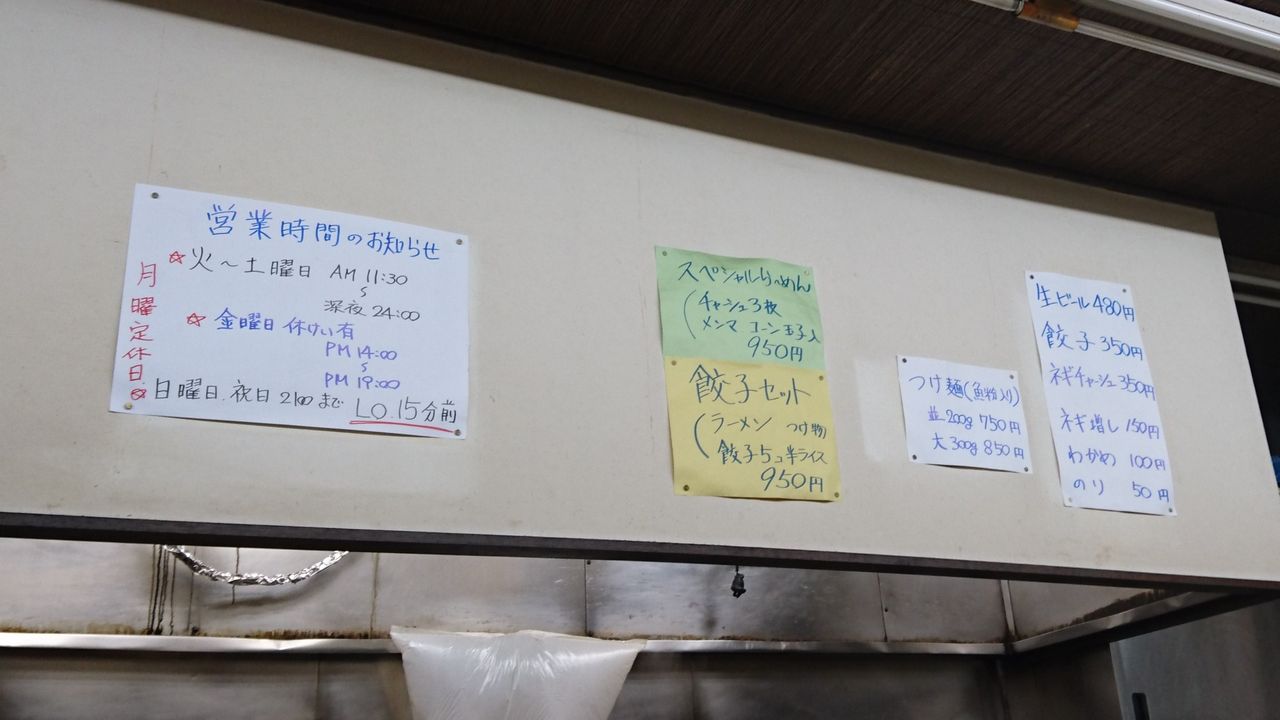 営業時間のお知らせ
☆火～土曜日 AM 11:30
～
深夜 24:00
☆金曜日 休けい有
PM 14:00
～
PM 19:00
☆日曜日.祝日 21:00まで LO.15分前
月曜定休日
スペシャルらーめん
(チャーシュー3枚
メンマ コーン 玉子入
950円
餃子セット
(ラーメン つけ物)
餃子5コ 半ライス
950円
つけ麺(魚粉入り)
並200g 750円
大300g 850円
生ビール 480円
餃子 350円
ネギチャーシュー 350円
ネギ増し 150円
わかめ 100円
のり 50円